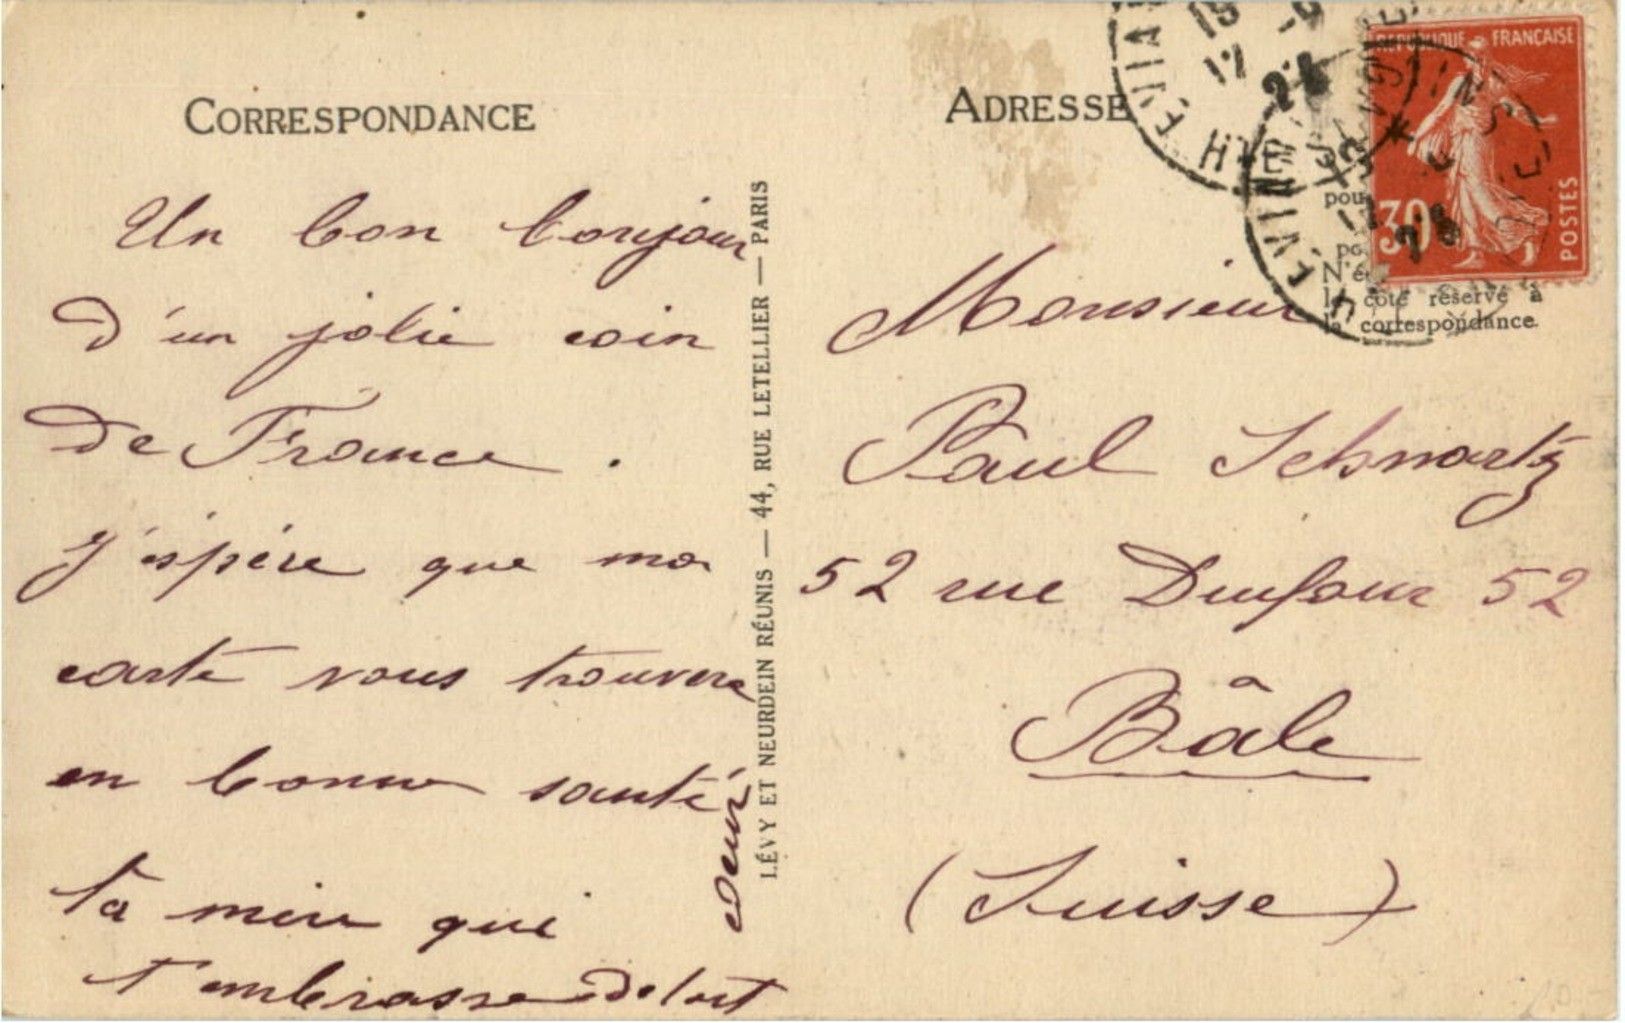 CORRESPONDANCE
Un bon bonjour
d'un jolie coin
de France.
J'espère que ma
carte vous trouvera
en bonne santé
ta mère qui
t'embrasse de tout
coeur
LÉVY ET NEURDEIN RÉUNIS — 44, RUE LETELLIER — PARIS
ADRESSE
REPUBLIQUE FRANÇAISE
30
POSTES
EVIAN
Monsieur
Paul Schwartz
52 rue Dufour 52
Bâle
(Suisse)
le côté réservé à
la correspondance.